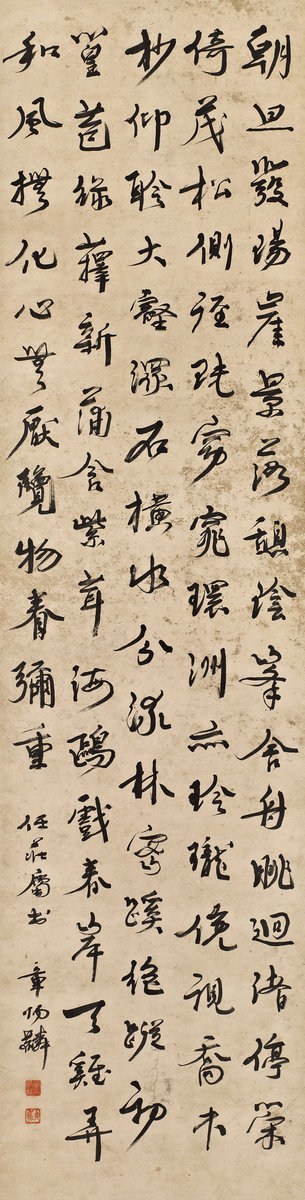 朝旦發陽崖景落憩陰峯舍舟眺迴渚停策
倚茂松側逕既窈窕環洲亦玲瓏俛視喬木
杪仰聆大壑灇石橫水分流林密蹊絕蹤初
篁苞綠籜新蒲含紫茸海鷗戲春岸天雞弄
和風撫化心無厭覽物眷彌重
任莊屬書
章炳麟